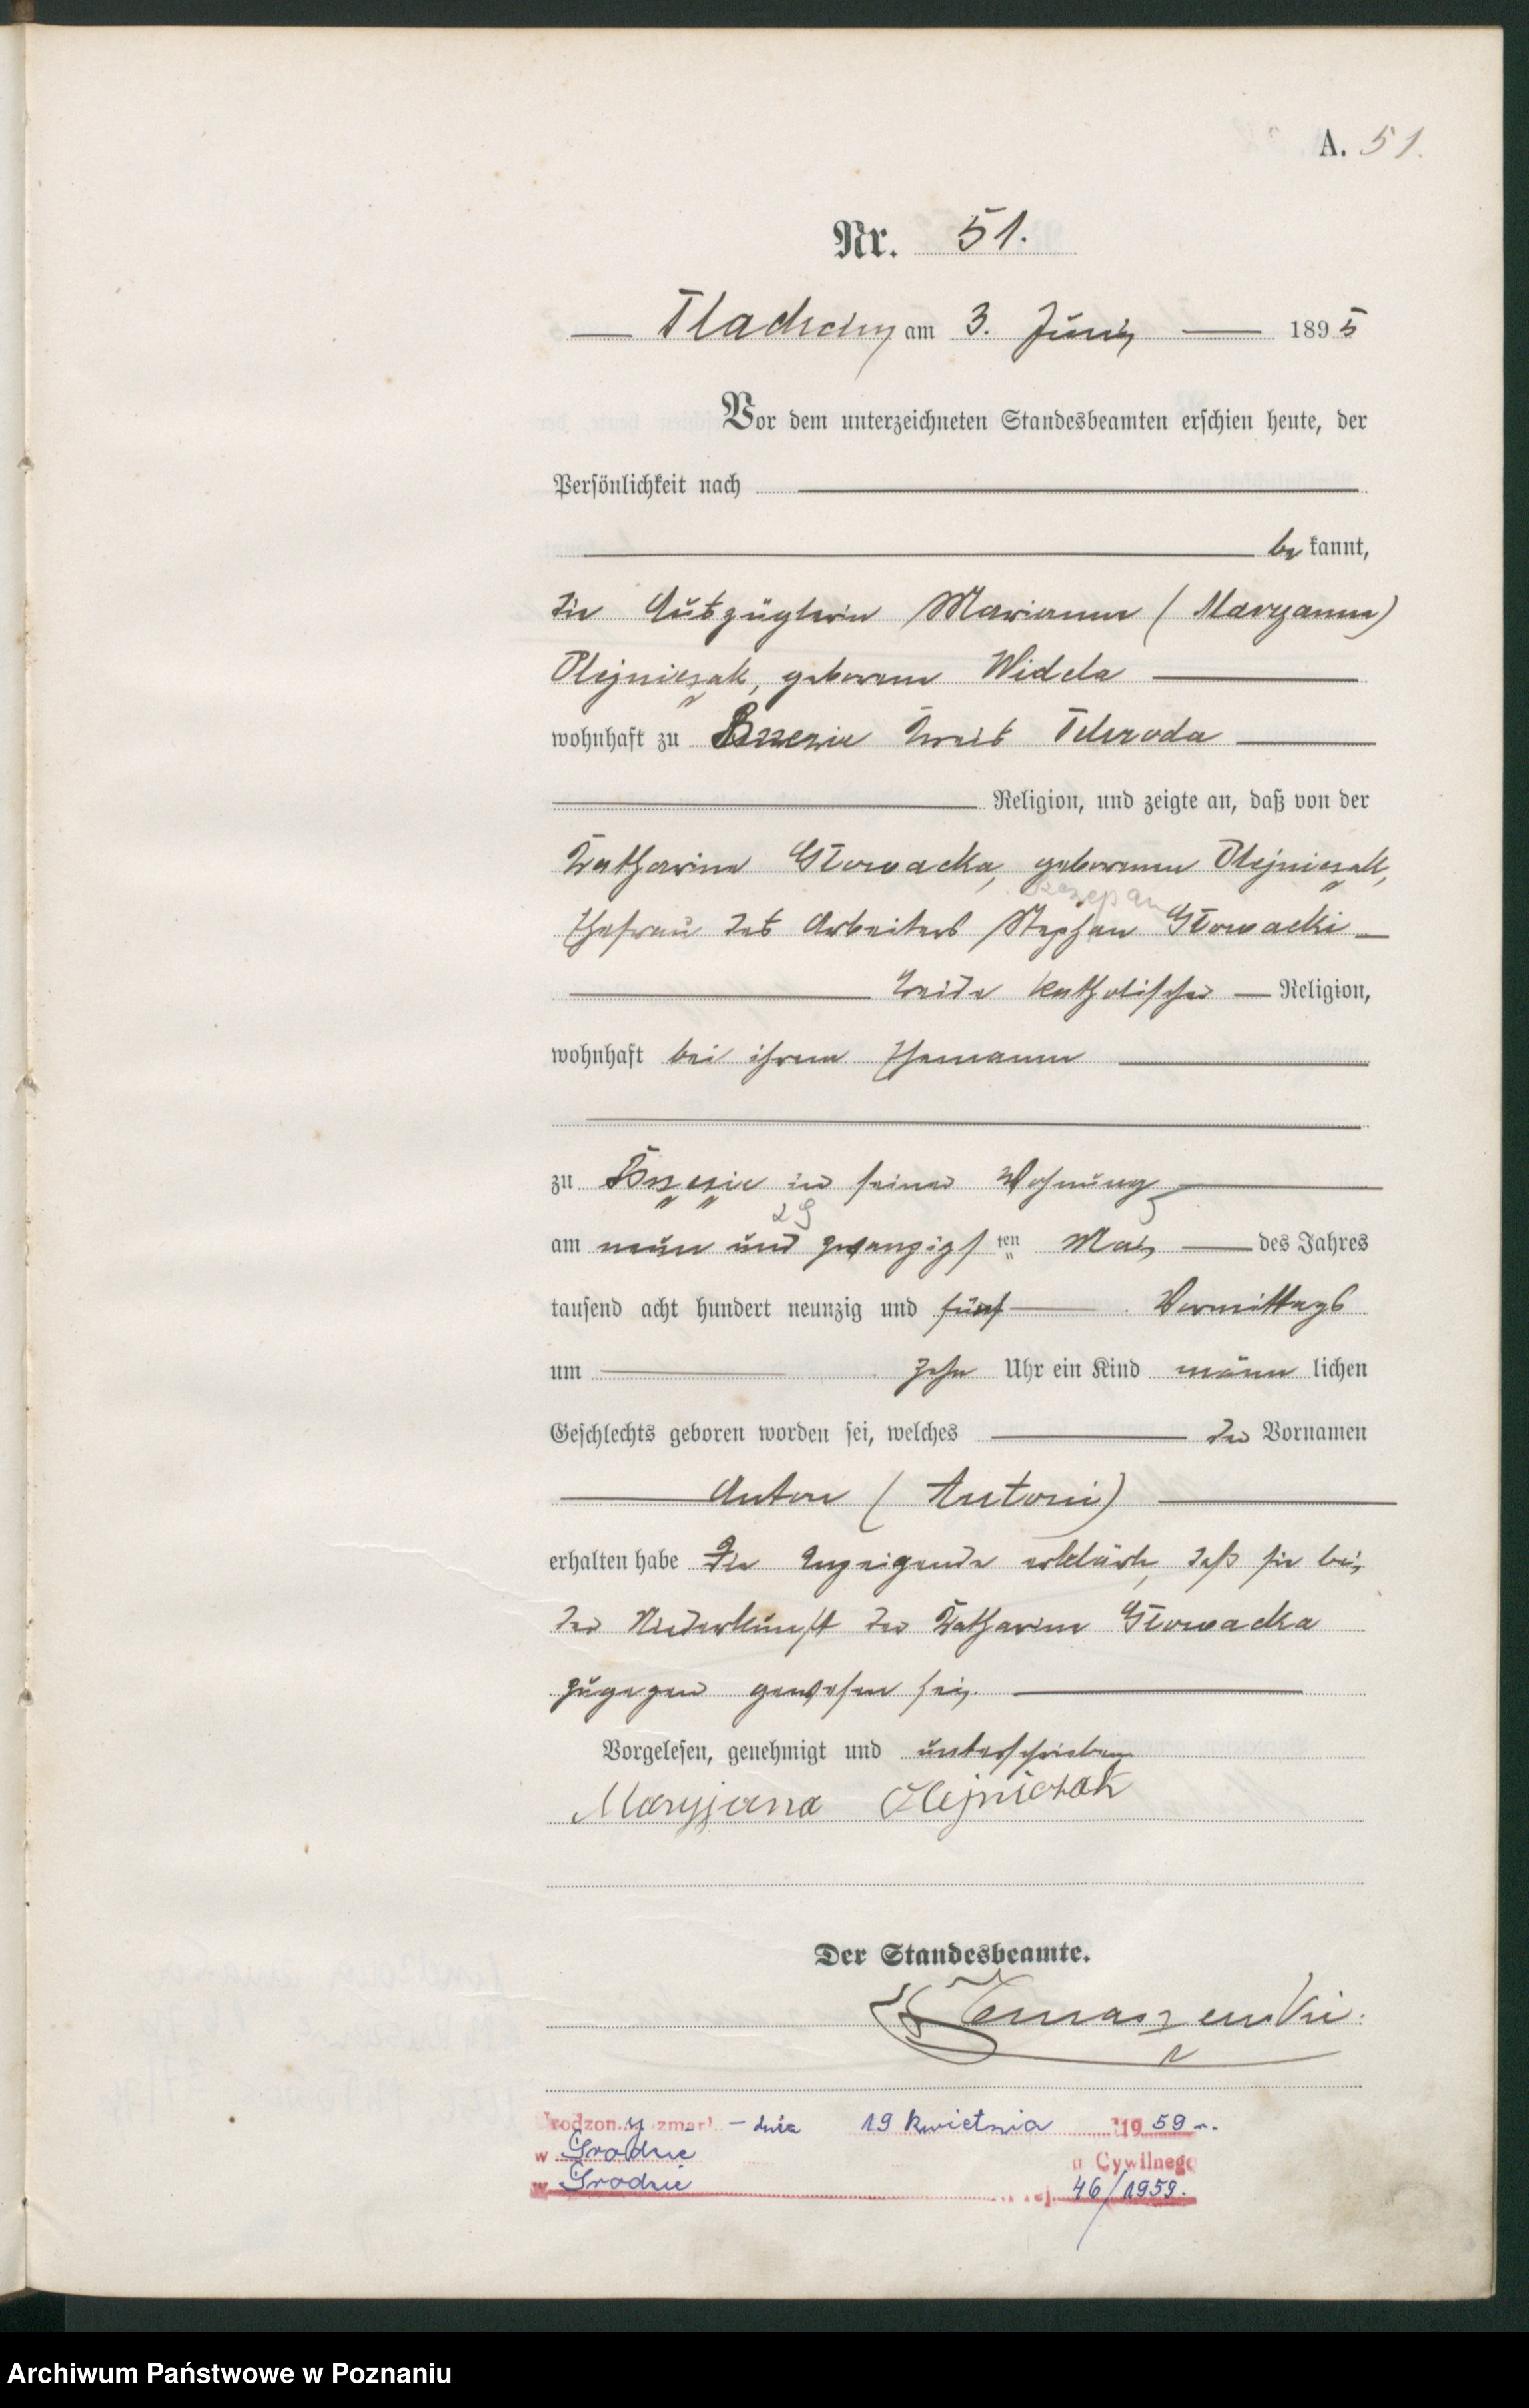 A. 51.
Nr. 51.
am 3. Juni 1895
Vor dem unterzeichneten Standesbeamten erschien heute, der
Persönlichkeit nach
be kannt,
die Auszüglerin Marianna (Maryanna)
Olejniczak, geborene Widela
wohnhaft zu Brzezie Kreis Schroda
Religion, und zeigte an, daß von der
Katharina Głowacka, geborenen Olejniczak,
Szczepan
Ehefrau des Arbeiters Stephan Głowacki
beide katholischer Religion,
wohnhaft bei ihrem Ehemann
zu Brzezie in seiner Wohnung
29
am neun und zwanzigsten Mai des Jahres
tausend acht hundert neunzig und fünf Vormittags
um zehn Uhr ein Kind männ lichen
Geschlechts geboren worden sei, welches den Vornamen
Anton (Antoni)
erhalten habe Die Anzeigende erklärte, daß sie bei
der Niederkunft der Katharina Głowacka
zugegen gewesen sei.
Vorgelesen, genehmigt und unterschrieben
Maryjana Olejniczak
Der Standesbeamte.
Tomaszewski.
Urodzony zmarł – dnia 19 kwietnia 1959 r.
w Grodzie
u Cywilnego
w Grodzie 46/1959.
Archiwum Państwowe w Poznaniu